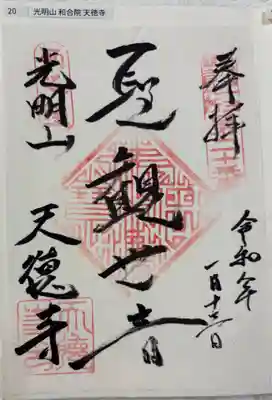 20 光明山 和合院 天徳寺
奉拝
令和年
一月十日
聖観世音
光明山
天徳寺